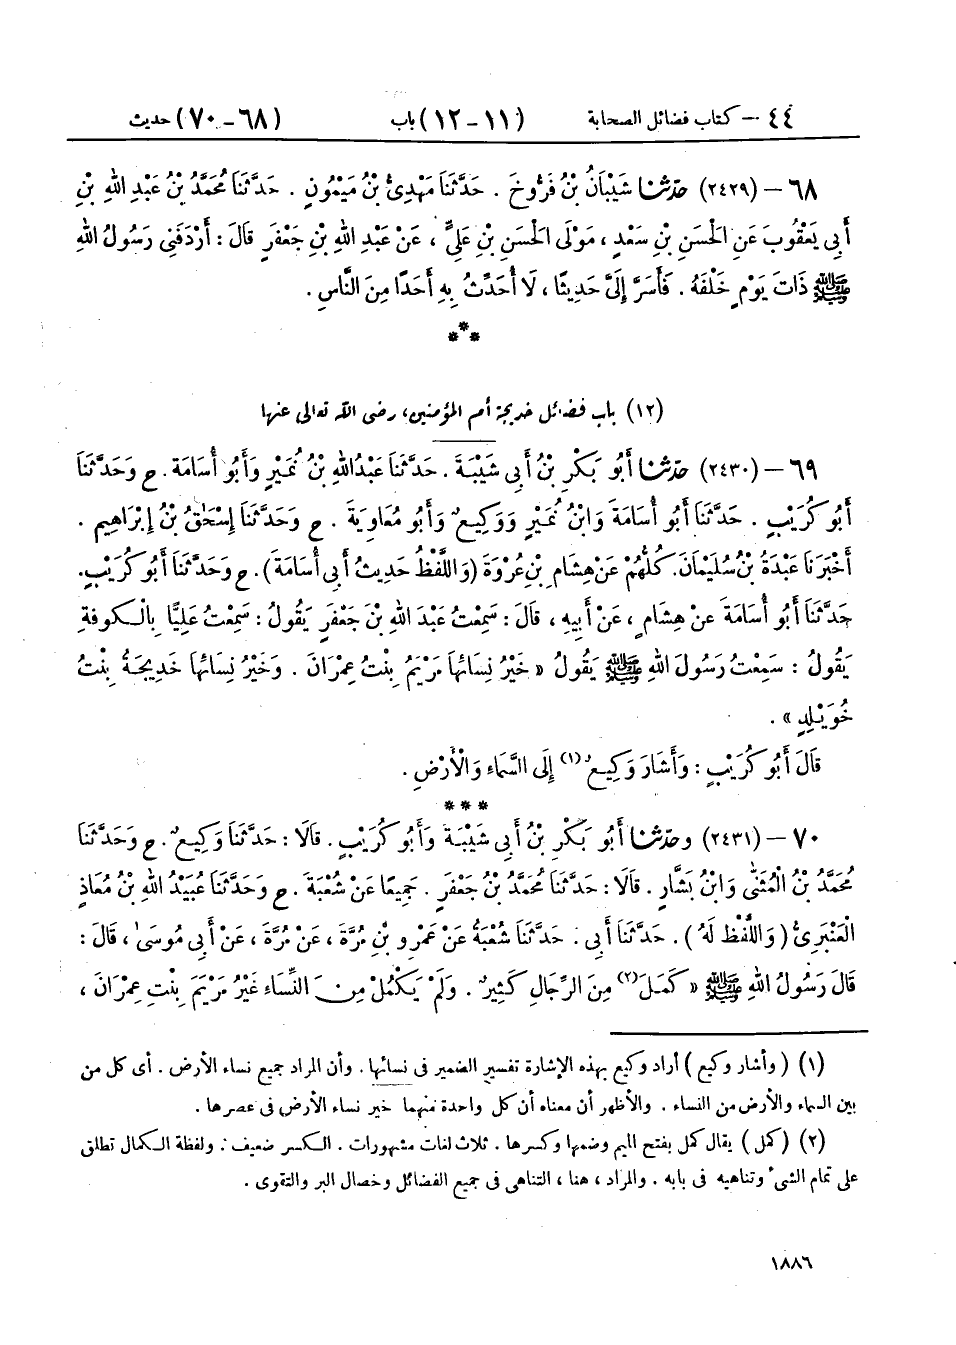 ٤٤ – كتاب فضائل الصحابة (١١ – ١٢) باب (٦٨ – ٧٠) حديث
٦٨ – (٢٤٢٩) حَدَّثَنَا شَيْبَانُ بْنُ فَرُّوخَ . حَدَّثَنَا مَهْدِىُّ بْنُ مَيْمُونٍ . حَدَّثَنَا مُحَمَّدُ بْنُ عَبْدِ اللهِ بْنِ
أَبِى يَعْقُوبَ عَنِ الْحَسَنِ بْنِ سَعْدٍ ، مَوْلَى الْحَسَنِ بْنِ عَلِىٍّ ، عَنْ عَبْدِ اللهِ بْنِ جَعْفَرٍ قَالَ : أَرْدَفَنِى رَسُولُ اللهِ
ﷺ ذَاتَ يَوْمٍ خَلْفَهُ . فَأَسَرَّ إِلَىَّ حَدِيثًا ، لَا أُحَدِّثُ بِهِ أَحَدًا مِنَ النَّاسِ .
***
(١٢) باب فضائل خديجة أم المؤمنين، رضى الله تعالى عنها
٦٩ – (٢٤٣٠) حَدَّثَنَا أَبُو بَكْرِ بْنُ أَبِى شَيْبَةَ . حَدَّثَنَا عَبْدُ اللهِ بْنُ نُمَيْرٍ وَأَبُو أُسَامَةَ . ح وَحَدَّثَنَا
أَبُو كُرَيْبٍ . حَدَّثَنَا أَبُو أُسَامَةَ وَابْنُ نُمَيْرٍ وَوَكِيعٌ وَأَبُو مُعَاوِيَةَ . ح وَحَدَّثَنَا إِسْحَاقُ بْنُ إِبْرَاهِيمَ .
أَخْبَرَنَا عَبْدَةُ بْنُ سُلَيْمَانَ. كُلُّهُمْ عَنْ هِشَامِ بْنِ عُرْوَةَ (وَاللَّفْظُ حَدِيثُ أَبِى أُسَامَةَ). ح وَحَدَّثَنَا أَبُو كُرَيْبٍ.
حَدَّثَنَا أَبُو أُسَامَةَ عَنْ هِشَامٍ ، عَنْ أَبِيهِ ، قَالَ : سَمِعْتُ عَبْدَ اللهِ بْنَ جَعْفَرٍ يَقُولُ : سَمِعْتُ عَلِيًّا بِالْكُوفَةِ
يَقُولُ : سَمِعْتُ رَسُولَ اللهِ ﷺ يَقُولُ « خَيْرُ نِسَائِهَا مَرْيَمُ بِنْتُ عِمْرَانَ . وَخَيْرُ نِسَائِهَا خَدِيجَةُ بِنْتُ
خُوَيْلِدٍ » .
قَالَ أَبُو كُرَيْبٍ : وَأَشَارَ وَكِيعٌ (١) إِلَى السَّمَاءِ وَالْأَرْضِ .
***
٧٠ – (٢٤٣١) وحَدَّثَنَا أَبُو بَكْرِ بْنُ أَبِى شَيْبَةَ وَأَبُو كُرَيْبٍ . قَالَا : حَدَّثَنَا وَكِيعٌ . ح وَحَدَّثَنَا
مُحَمَّدُ بْنُ الْمُثَنَّى وَابْنُ بَشَّارٍ . قَالَا : حَدَّثَنَا مُحَمَّدُ بْنُ جَعْفَرٍ . جَمِيعًا عَنْ شُعْبَةَ . ح وَحَدَّثَنَا عُبَيْدُ اللهِ بْنُ مُعَاذٍ
الْعَنْبَرِىُّ ( وَاللَّفْظُ لَهُ ) . حَدَّثَنَا أَبِى . حَدَّثَنَا شُعْبَةُ عَنْ عَمْرِو بْنِ مُرَّةَ ، عَنْ مُرَّةَ ، عَنْ أَبِى مُوسَىٰ ، قَالَ :
قَالَ رَسُولُ اللهِ ﷺ « كَمَلَ (٢) مِنَ الرِّجَالِ كَثِيرٌ . وَلَمْ يَكْمُلْ مِنَ النِّسَاءِ غَيْرُ مَرْيَمَ بِنْتِ عِمْرَانَ ،
(١) ( وأشار وكيع ) أراد وكيع بهذه الإشارة تفسير الضمير فى نسائها . وأن المراد جميع نساء الأرض . أى كل من
بين السماء والأرض من النساء . والأظهر أن معناه أن كل واحدة منهما خير نساء الأرض فى عصرها .
(٢) ( كمل ) يقال كمل بفتح الميم وضمها وكسرها . ثلاث لغات مشهورات . الكسر ضعيف . ولفظة الكمال تطلق
على تمام الشىء وتناهيه فى بابه . والمراد ، هنا ، التناهى فى جميع الفضائل وخصال البر والتقوى .
١٨٨٦